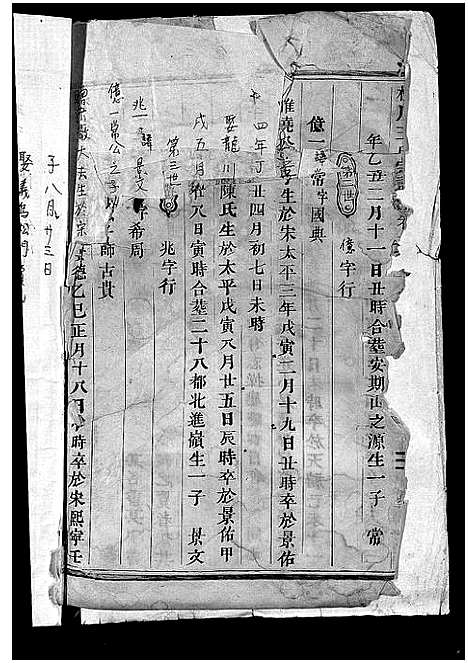 年乙丑二月十一日丑時合塟安期山之源生一子　常
第二世　億字行
億一　諱常　字國典
惟堯公之子生於宋太平三年戊寅二月十九日丑時卒於景佑
四年丁丑四月初七日未時
娶龍川陳氏生於太平戊寅八月廿五日辰時卒於景佑甲
戌五月初八日寅時合塟二十八都北進嶺生一子　景文
第三世　兆字行
兆一　諱景文　字希周
億一常公之子　師古貴
生於宋景德乙巳正月十八日　時卒於宋熙寧壬
子八月廿三日
娶義烏